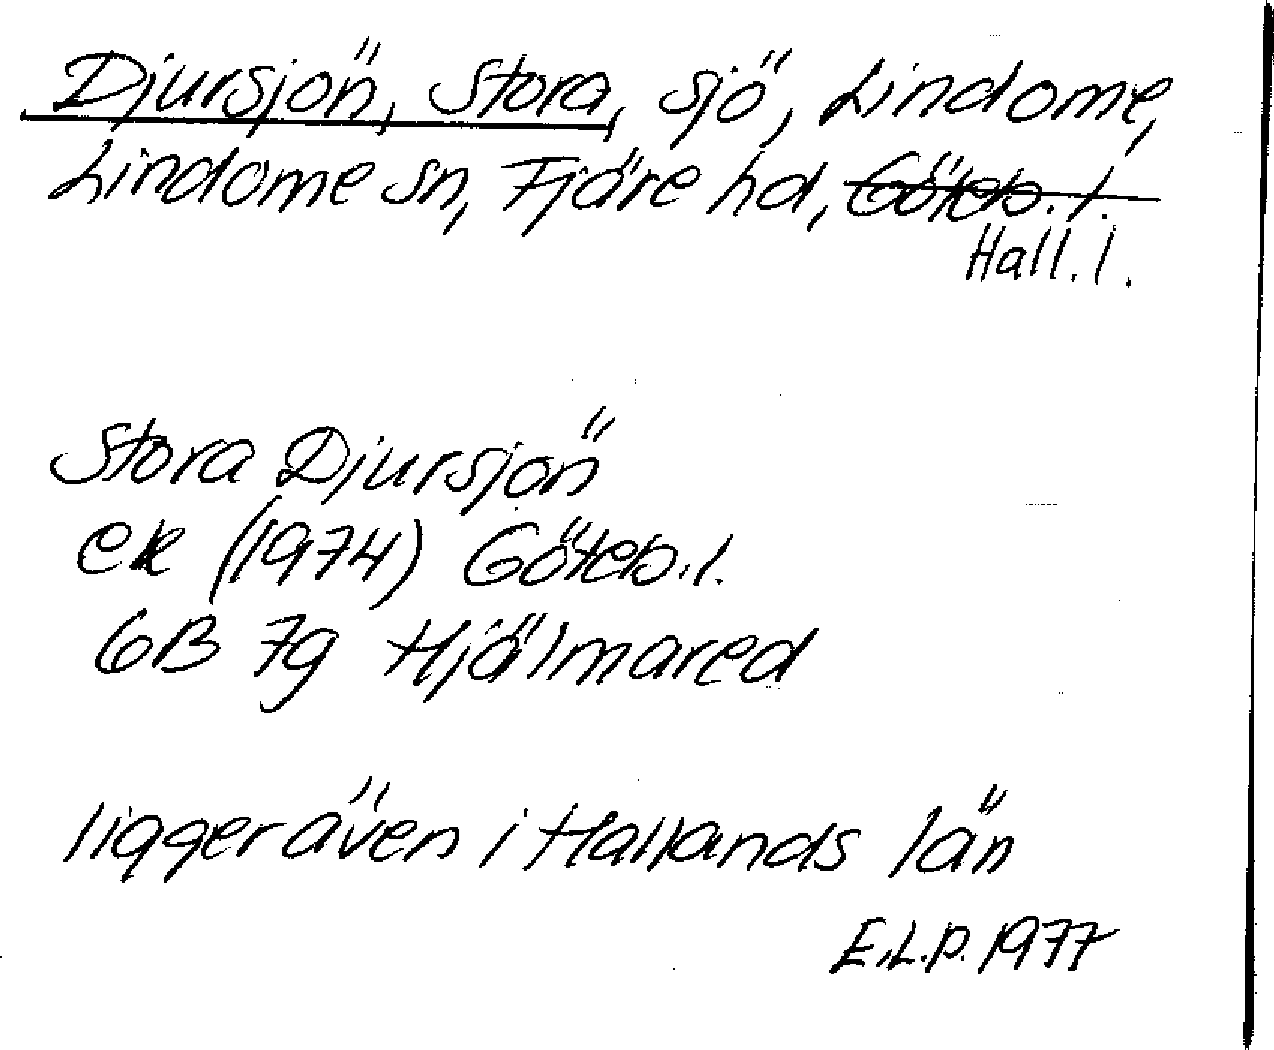 Djursjön, Stora, sjö, Lindome,
Lindome sn, Fjäre hd, Göteb. l.
Hall. l.
Stora Djursjön
ek (1974) Göteb. l.
6B 7g Hjälmared
ligger även i Hallands län
E.L.P. 1977